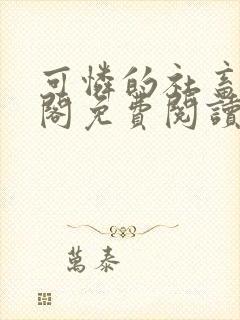 可憐的社畜
閣免費閱讀
萬泰